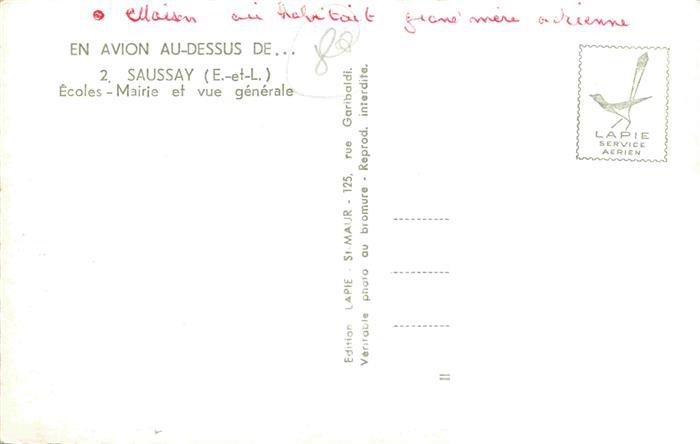 • Maison où habitait grand mère adrienne
EN AVION AU-DESSUS DE...
2. SAUSSAY (E.-et-L.)
Écoles - Mairie et vue générale
Edition LAPIE - St-MAUR - 125, rue Garibaldi.
Véritable photo au bromure - Reprod. interdite.
LAPIE
SERVICE
AERIEN